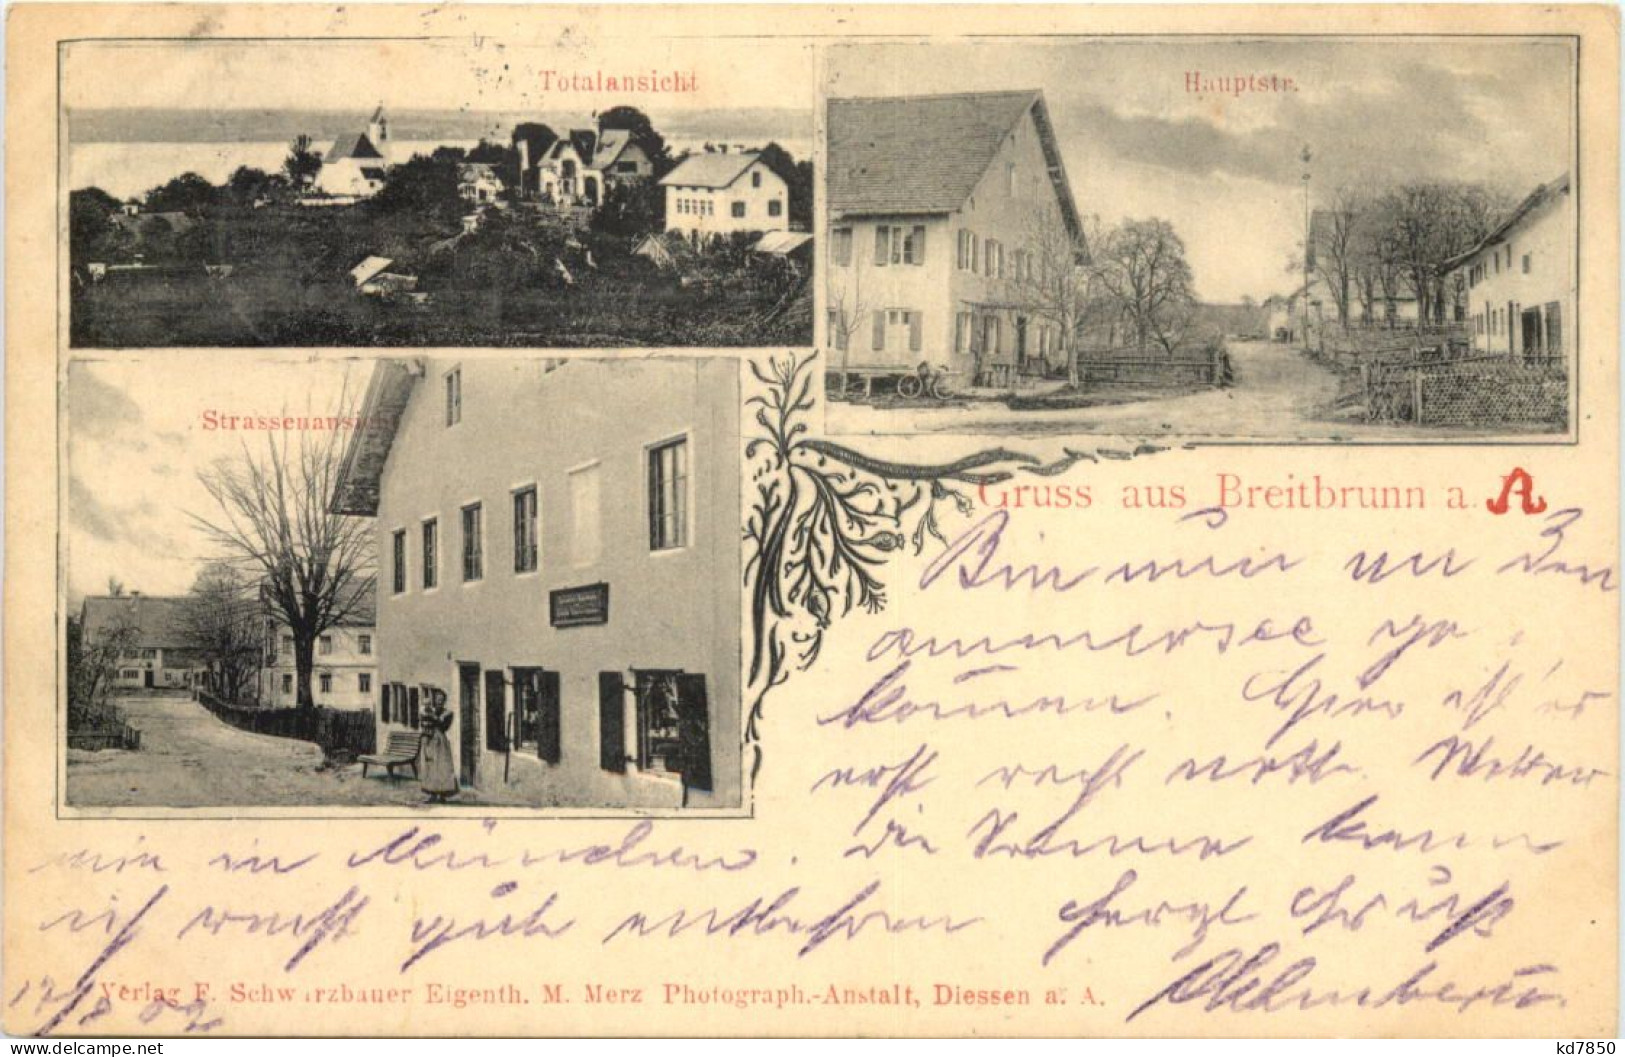 Totalansicht
Hauptstr.
Strassenansicht
Gruss aus Breitbrunn a. A
Bin nun an den
ammersee
kommen. Hier ist es
erst recht nett. Wetter
wie in München. Die Sonne kann
ich recht gut entbehren Herzl Gruß
Verlag F. Schwarzbauer Eigenth. M. Merz Photograph.-Anstalt, Diessen a. A.
delcampe.net
kd7850